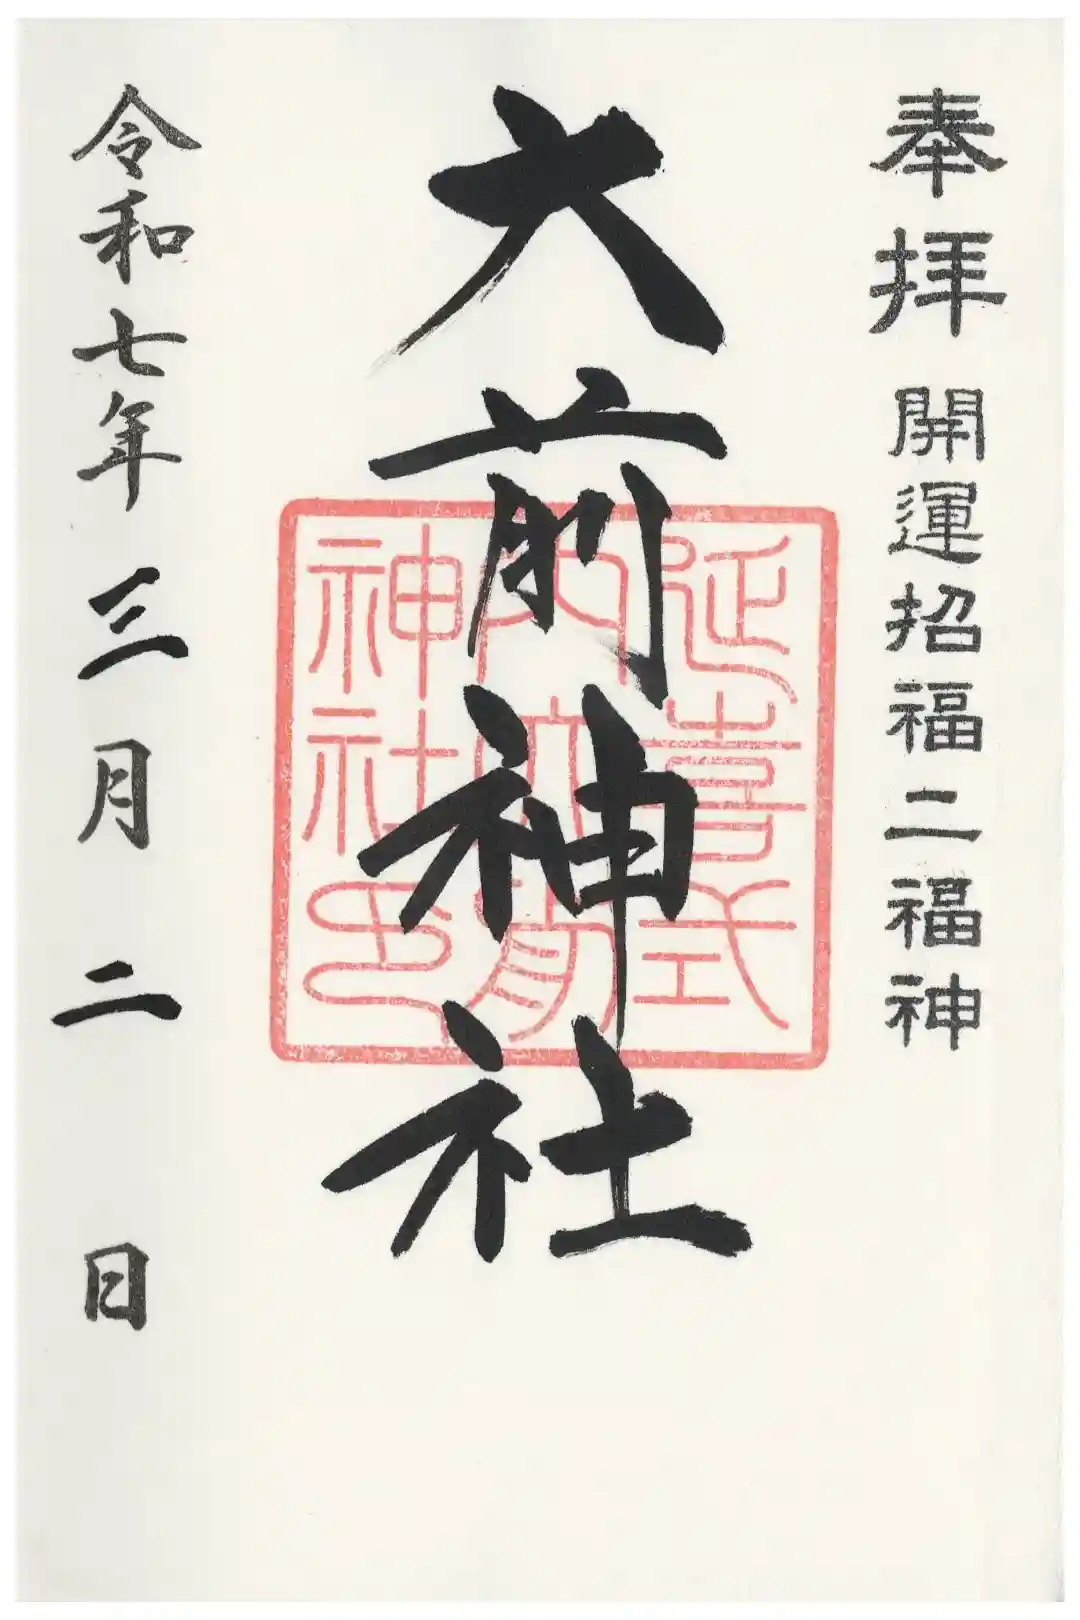 奉拝 開運招福二福神
大前神社
延喜式
内大前
神社印
令和七年三月二日